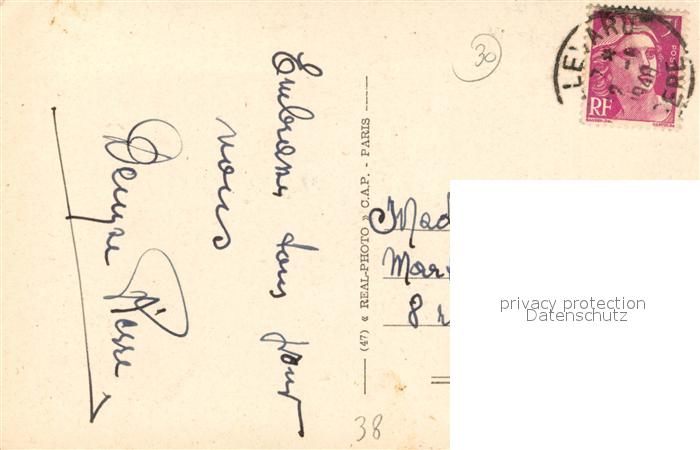 Embrassez tous pour
nous
Denyse Pierre
(47) « REAL-PHOTO » C.A.P. - PARIS
30
38
RF
POSTES
Mad
Mar
8 r
privacy protection
Datenschutz